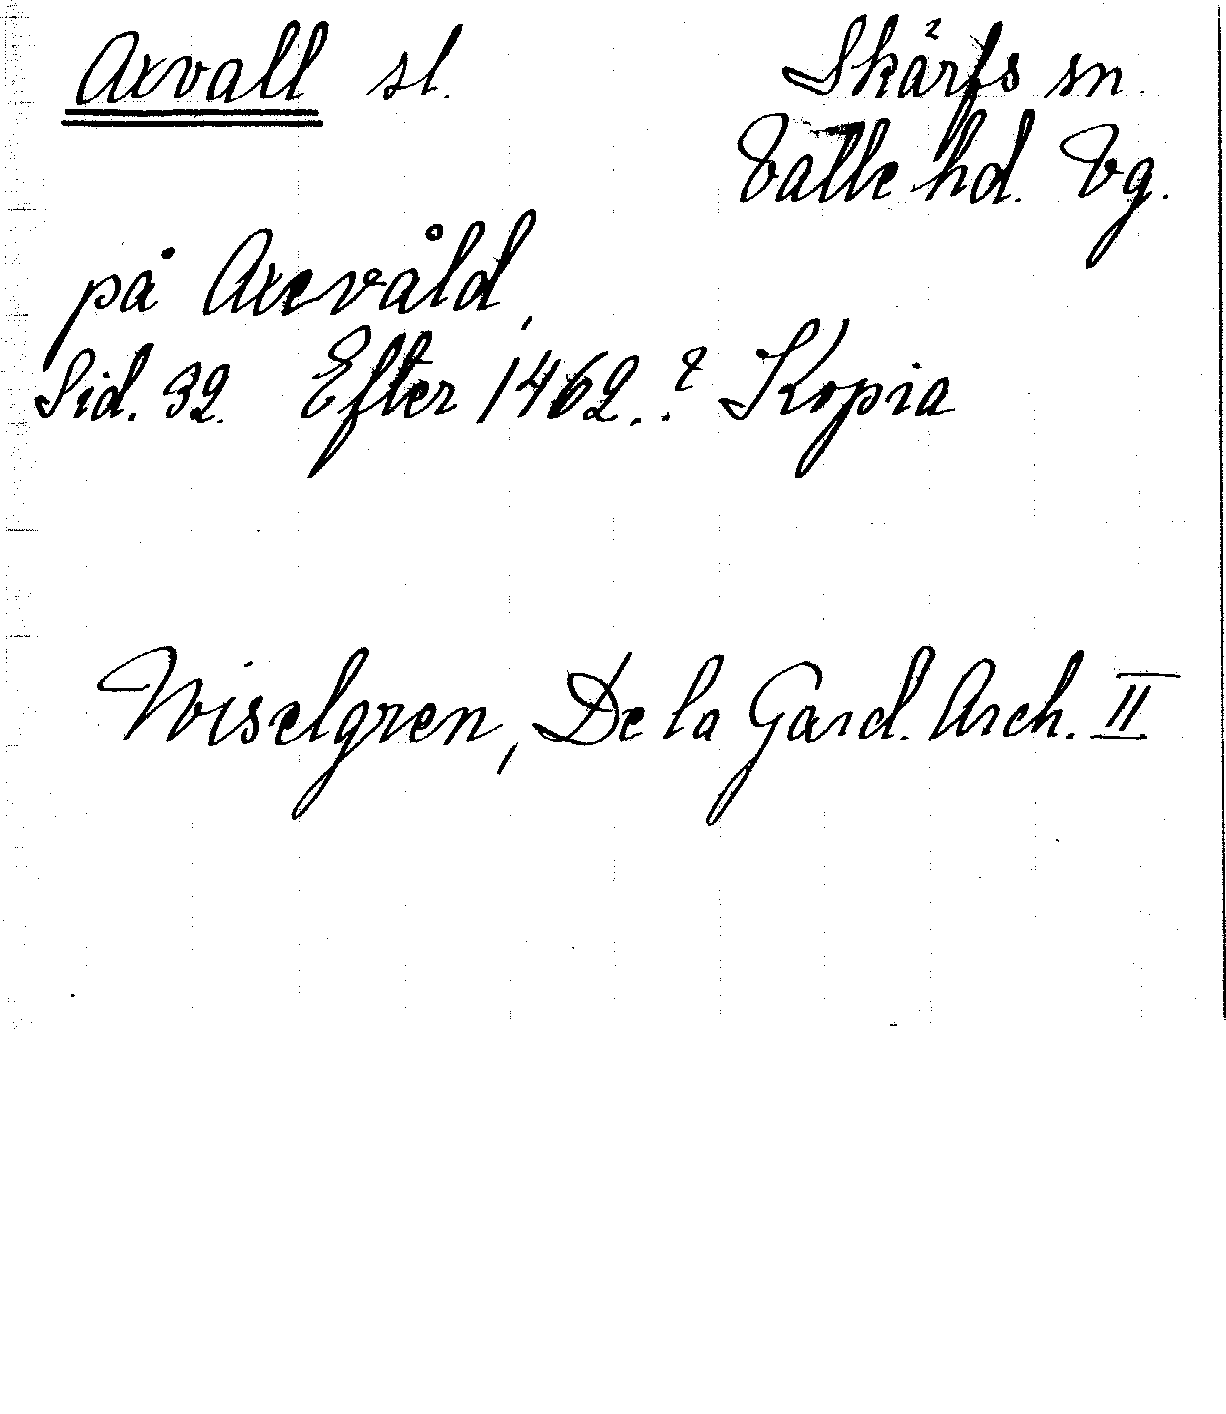 Axvall sl. Skärfs sn.
Valle hd. Vg.
på Axevåld,
Sid. 32. Efter 1462.? Kopia
Wiselgren, De la Gard. Arch. II